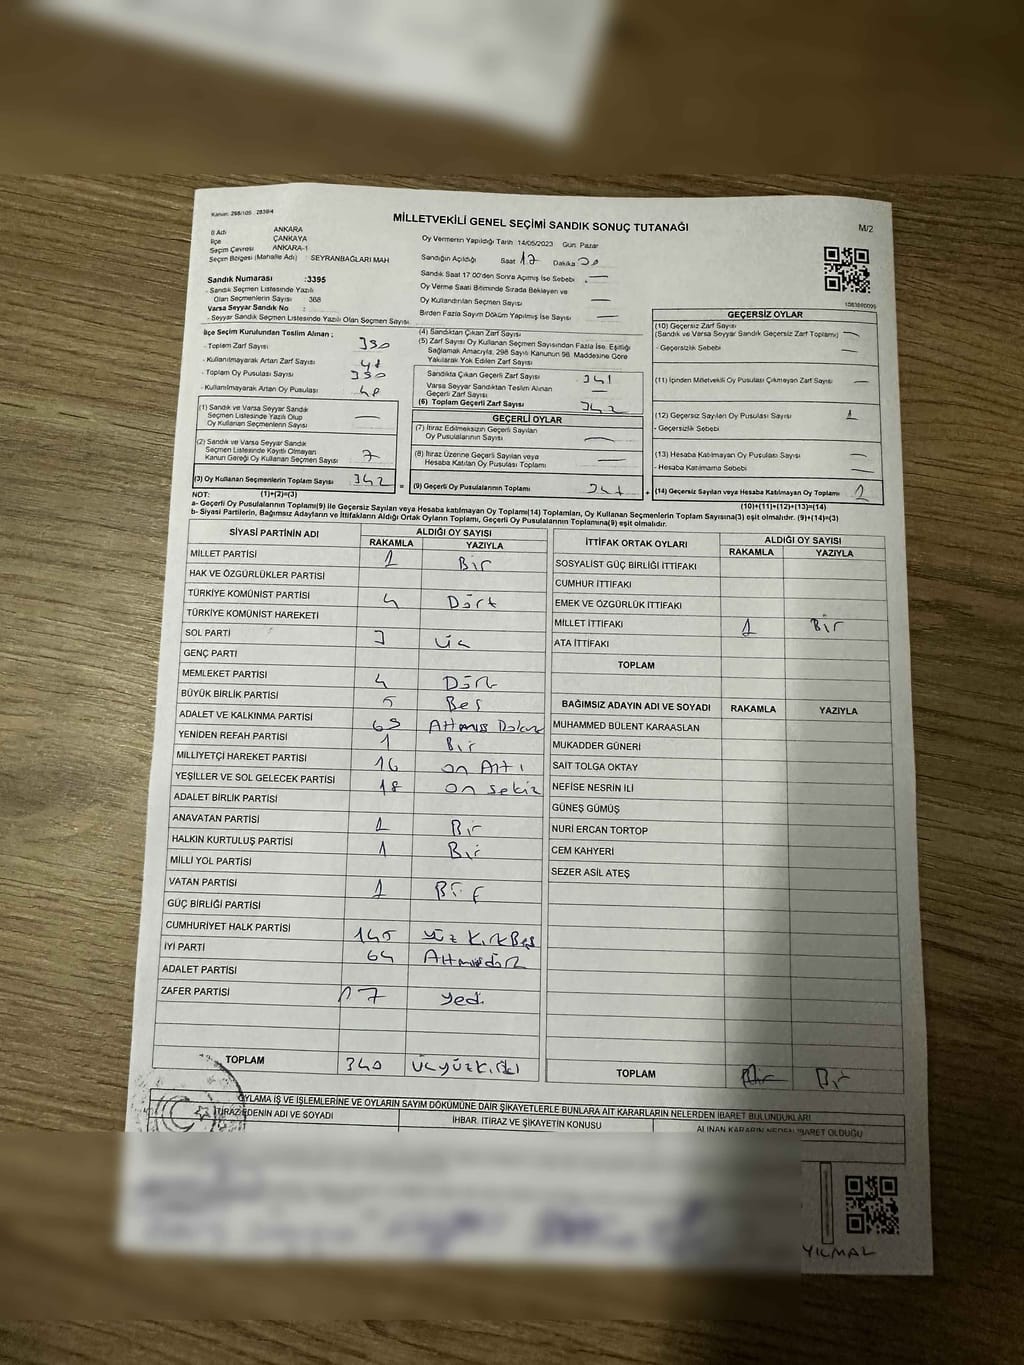 Kanun: 298/105 2839/4
MİLLETVEKİLİ GENEL SEÇİMİ SANDIK SONUÇ TUTANAĞI
M/2
İl Adı ANKARA
İlçe ÇANKAYA
Seçim Çevresi ANKARA-1
Seçim Bölgesi (Mahalle Adı) : SEYRANBAĞLARI MAH
Sandık Numarası :3395
- Sandık Seçmen Listesinde Yazılı
Olan Seçmenlerin Sayısı : 388
Varsa Seyyar Sandık No :
- Seyyar Sandık Seçmen Listesinde Yazılı Olan Seçmen Sayısı
Oy Vermenin Yapıldığı Tarih 14/05/2023 Gün Pazar
Sandığın Açıldığı Saat 17 Dakika
Sandık Saat 17:00'den Sonra Açılmış İse Sebebi
Oy Verme Saati Bitiminde Sırada Bekleyen ve
Oy Kullandırılan Seçmen Sayısı —
Birden Fazla Sayım Döküm Yapılmış İse Sayısı —
İlçe Seçim Kurulundan Teslim Alınan ;
- Toplam Zarf Sayısı 390
- Kullanılmayarak Artan Zarf Sayısı 48
- Toplam Oy Pusulası 390
- Kullanılmayarak Artan Oy Pusulası 48
(1) Sandık ve Varsa Seyyar Sandık
Seçmen Listesinde Yazılı Olup
Oy Kullanan Seçmenlerin Sayısı —
(2) Sandık ve Varsa Seyyar Sandık
Seçmen Listesinde Kayıtlı Olmayan
Kanun Gereği Oy Kullanan Seçmen Sayısı 7
(3) Oy Kullanan Seçmenlerin Toplam Sayısı 342
(1)+(2)=(3)
(4) Sandıktan Çıkan Zarf Sayısı
(5) Zarf Sayısı Oy Kullanan Seçmen Sayısından Fazla İse, Eşitliği
Sağlamak Amacıyla, 298 Sayılı Kanunun 98. Maddesine Göre
Yakılarak Yok Edilen Zarf Sayısı
Sandıkta Çıkan Geçerli Zarf Sayısı 341
Varsa Seyyar Sandıktan Teslim Alınan
Geçerli Zarf Sayısı —
(6) Toplam Geçerli Zarf Sayısı 342
GEÇERLİ OYLAR
(7) İtiraz Edilmeksizin Geçerli Sayılan
Oy Pusulalarının Sayısı —
(8) İtiraz Üzerine Geçerli Sayılan veya
Hesaba Katılan Oy Pusulası Toplamı —
= (9) Geçerli Oy Pusulalarının Toplamı 341
GEÇERSİZ OYLAR
(10) Geçersiz Zarf Sayısı
(Sandık ve Varsa Seyyar Sandık Geçersiz Zarf Toplamı) —
- Geçersizlik Sebebi —
(11) İçinden Milletvekili Oy Pusulası Çıkmayan Zarf Sayısı —
(12) Geçersiz Sayılan Oy Pusulası Sayısı 1
- Geçersizlik Sebebi
(13) Hesaba Katılmayan Oy Pusulası Sayısı —
- Hesaba Katılmama Sebebi —
+ (14) Geçersiz Sayılan veya Hesaba Katılmayan Oy Toplamı 1
(10)+(11)+(12)+(13)=(14)
NOT:
a- Geçerli Oy Pusulalarının Toplamı(9) ile Geçersiz Sayılan veya Hesaba Katılmayan Oy Toplamı(14) Toplamları, Oy Kullanan Seçmenlerin Toplam Sayısına(3) eşit olmalıdır. (9)+(14)=(3)
b- Siyasi Partilerin, Bağımsız Adayların ve İttifakların Aldığı Ortak Oyların Toplamı, Geçerli Oy Pusulalarının Toplamına(9) eşit olmalıdır.
SİYASİ PARTİNİN ADI ALDIĞI OY SAYISI
RAKAMLA YAZIYLA
MİLLET PARTİSİ 1 Bir
HAK VE ÖZGÜRLÜKLER PARTİSİ
TÜRKİYE KOMÜNİST PARTİSİ 4 Dört
TÜRKİYE KOMÜNİST HAREKETİ
SOL PARTİ 3 Üç
GENÇ PARTİ
MEMLEKET PARTİSİ 4 Dört
BÜYÜK BİRLİK PARTİSİ 5 Beş
ADALET VE KALKINMA PARTİSİ 69 Altmış Dokuz
YENİDEN REFAH PARTİSİ 1 Bir
MİLLİYETÇİ HAREKET PARTİSİ 16 on Altı
YEŞİLLER VE SOL GELECEK PARTİSİ 18 on sekiz
ADALET BİRLİK PARTİSİ
ANAVATAN PARTİSİ 1 Bir
HALKIN KURTULUŞ PARTİSİ 1 Bir
MİLLİ YOL PARTİSİ
VATAN PARTİSİ 1 Bir
GÜÇ BİRLİĞİ PARTİSİ
CUMHURİYET HALK PARTİSİ 145 yüz Kırk Beş
İYİ PARTİ 64 Altmışdört
ADALET PARTİSİ
ZAFER PARTİSİ 7 yedi
TOPLAM 340 üçyüzkırk
İTTİFAK ORTAK OYLARI ALDIĞI OY SAYISI
RAKAMLA YAZIYLA
SOSYALİST GÜÇ BİRLİĞİ İTTİFAKI
CUMHUR İTTİFAKI
EMEK VE ÖZGÜRLÜK İTTİFAKI
MİLLET İTTİFAKI 1 Bir
ATA İTTİFAKI
TOPLAM
BAĞIMSIZ ADAYIN ADI VE SOYADI RAKAMLA YAZIYLA
MUHAMMED BÜLENT KARAASLAN
MUKADDER GÜNERİ
SAİT TOLGA OKTAY
NEFİSE NESRİN İLİ
GÜNEŞ GÜMÜŞ
NURİ ERCAN TORTOP
CEM KAHYERİ
SEZER ASİL ATEŞ
TOPLAM Bir Bir
OYLAMA İŞ VE İŞLEMLERİNE VE OYLARIN SAYIM DÖKÜMÜNE DAİR ŞİKAYETLERLE BUNLARA AİT KARARLARIN NELERDEN İBARET BULUNDUKLARI
İTİRAZ EDENİN ADI VE SOYADI
İHBAR, İTİRAZ VE ŞİKAYETİN KONUSU
ALINAN KARARIN NEDEN İBARET OLDUĞU
YILMAZ